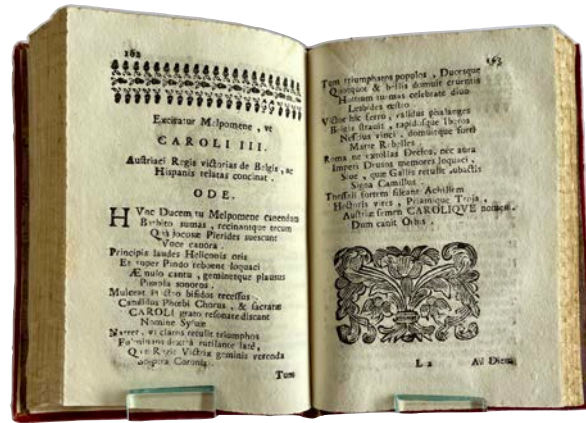 162
Excitatur Melpomene , vt
CAROLI III.
Austriaci Regis victorias de Belgis , ac
Hispanis relatas concinat .
ODE.
HVnc Ducem tu Melpomene canendum
Barbito sumas , recinantque tecum
Quà jocosæ Pierides suescunt
Voce canora .
Principis laudes Heliconis otis
Et super Pindo reboent loquaci
Æmulo cantu , geminetque plausus
Pimpla sonoros .
Mulceat bifidos recessus ,
Candidus Phœbi Chorus , & sacratæ
CAROLI grato resonare discant
Nomine Syluæ
Narret , vt claros retulit triumphos
Fulminans dextrâ rutilante latè ,
Quæ Regit Victrix geminis verenda
Sceptra Coronis .
Tum
163
Tum triumphatos populos , Ducesque
Quotquot & bellis domuit cruentis
Hostium turmas celebrate diuo
Lesbides œstro .
Victor hic ferro , validas phalanges
Belgis strauit , rapidosque Iberos
Nescius vinci , domuitque forti
Marte Rebelles .
Roma ne extollas Decios , nec aura
Imperi Drusos memores loquaci ,
Siue , quæ Gallis retulit subactis
Signa Camillus .
Thessali fortem sileant Achillem
Hectoris vires , Priamique Troja ,
Austriæ semen CAROLIQVE nomen
Dum canit Orbis .
L 2
Ad Diem